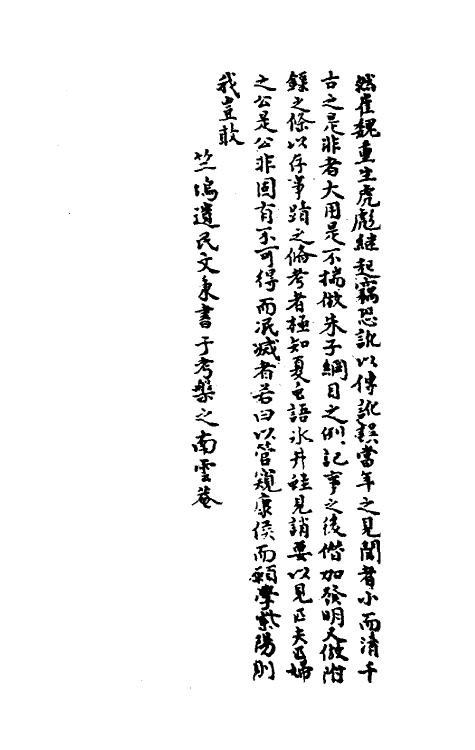 然崔魏重生虎彪繼起竊恐訛以傳訛誤當年之見聞者小而淆千
古之是非者大用是不揣倣朱子綱目之例記事之後僭加發明又倣附
錄之條以存事蹟之備考者極知夏虫語氷井蛙見誚要以見匹夫匹婦
之公是公非固有不可得而泯滅者若曰以管窺康侯而願學紫陽則
我豈敢
竺塢遺民文秉書于考槃之南雲菴